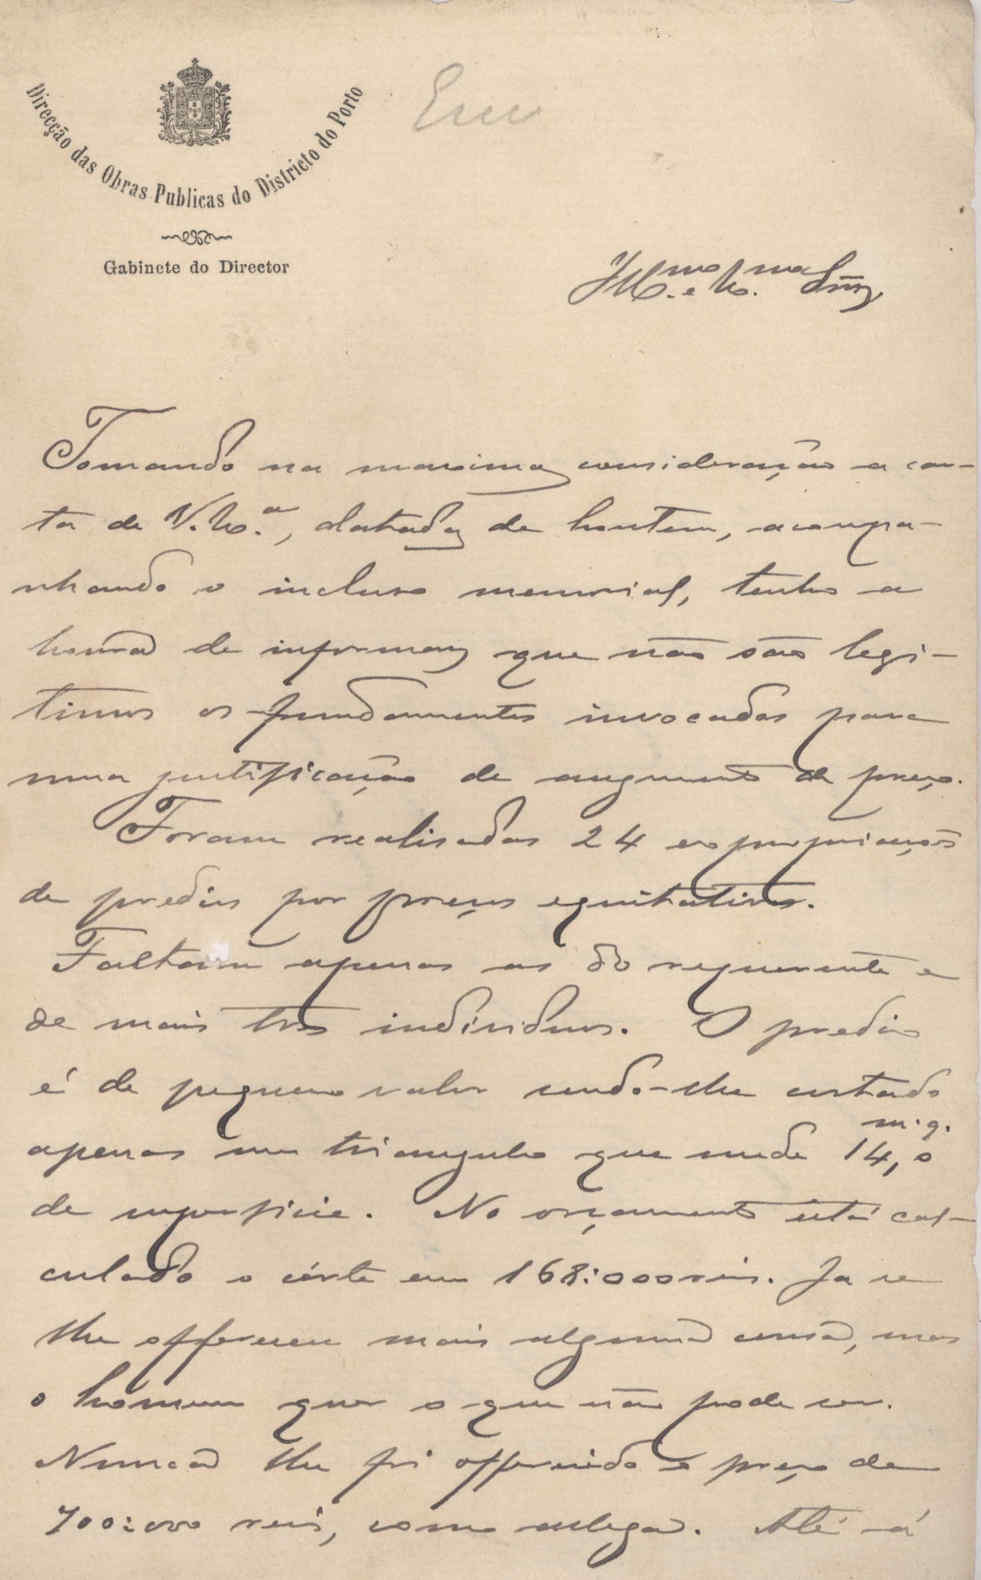 Direcção das Obras Publicas do Districto do Porto
Gabinete do Director
Ill.mo e Ex.mo Snr.
Tomando na maxima consideração a car-
ta de V. Ex.a, datada de hontem, acompa-
nhando o incluso memorial, tenho a
honra de informar que não são legi-
timos os fundamentos invocados para
uma justificação de augmento de preço.
Foram realisadas 24 expropriações
de predios por preços equitativos.
Faltam apenas as do requerente e
de mais tres individuos. O predio
é de pequeno valor sendo-lhe cortado
apenas um triangulo que mede 14,0 m.q.
de superficie. No orçamento está cal-
culado o córte em 168:000 reis. Ja se
lhe offereceu mais alguma cousa, mas
o homem quer o que não pode ser.
Nunca lhe foi offerecido o preço de
700:000 reis, como allega. Até á